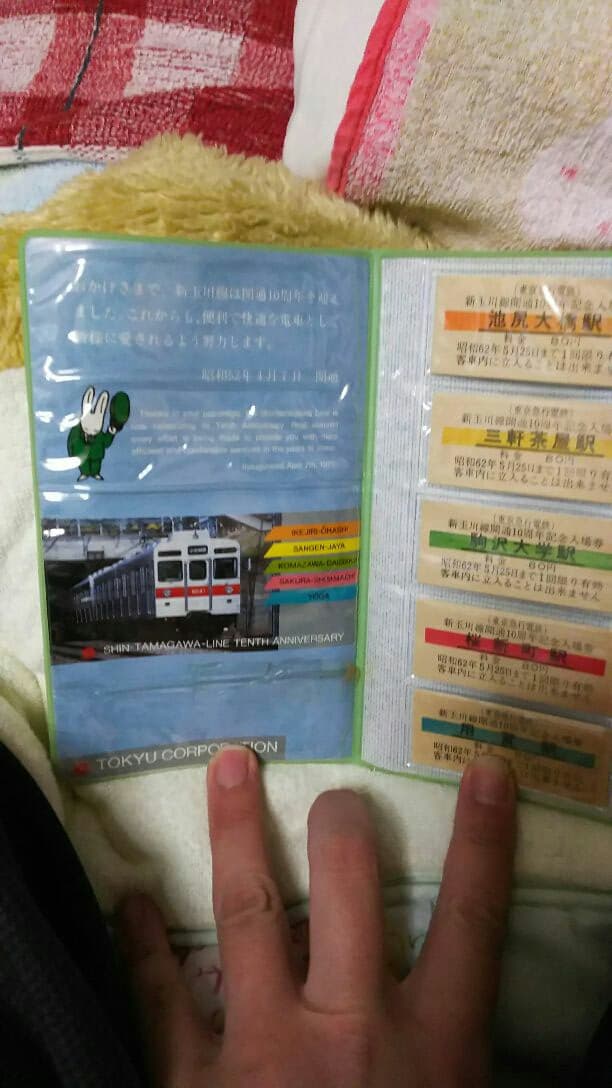 おかげさまで、新玉川線は開通10周年を迎え
ました。これからも、便利で快適な電車として
皆様に愛されるよう努力します。
昭和62年4月7日
Thanks to your patronage, the Shintamagawa Line is
now celebrating its Tenth Anniversary.
every effort is being made to provide you with more
efficient and
service in the years to come.
Inaugurated April 7th,
IKEJIRI-OHASHI
SANGEN-JAYA
KOMAZAWA-DAIGAKU
SAKURA-SHINMACHI
YOGA
SHIN-TAMAGAWA-LINE TENTH ANNIVERSARY
TOKYU CORPORATION
(東京急行電鉄)
新玉川線開通10周年記念入場券
池尻大橋駅
料金 80円
昭和62年5月25日まで1回限り有
客車内に立入ることは出来ませ
(東京急行電鉄)
新玉川線開通10周年記念入場券
三軒茶屋駅
料金 80円
昭和62年5月25日まで1回限り有効
客車内に立入ることは出来ません
(東京急行電鉄)
新玉川線開通10周年記念入場券
駒沢大学駅
料金 80円
昭和62年5月25日まで1回限り有効
客車内に立入ることは出来ません
(東京急行電鉄)
新玉川線開通10周年記念入場券
桜新町駅
料金 80円
昭和62年5月25日まで1回限り有効
客車内に立入ることは出来ません
(東京急行電鉄)
新玉川線開通10周年記念入場券
用賀駅
料金
昭和62年
客車内に